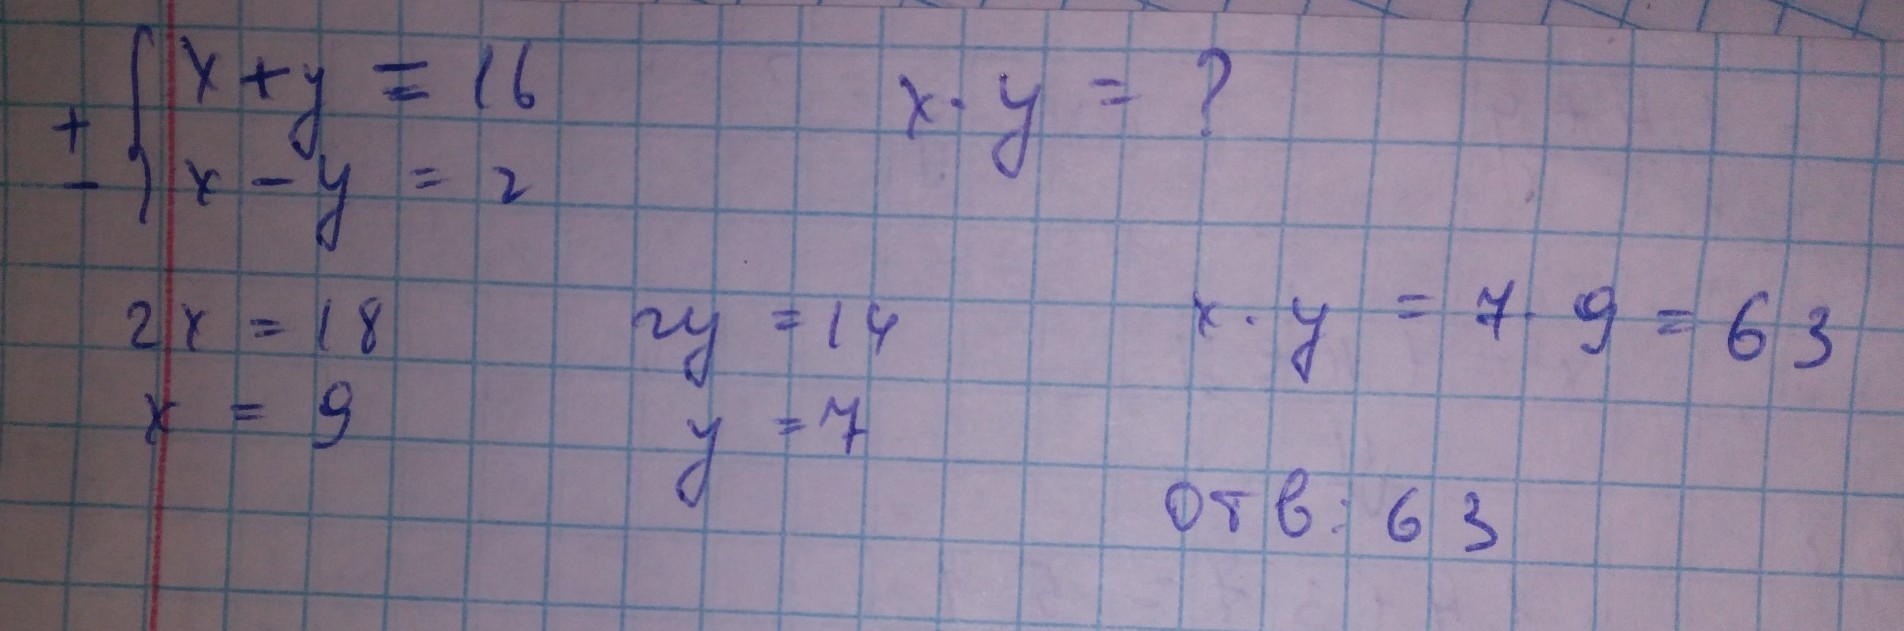 + { x + y = 16
- { x - y = 2
x · y = ?
2x = 18
x = 9
2y = 14
y = 7
x · y = 7 · 9 = 63
Отв: 63